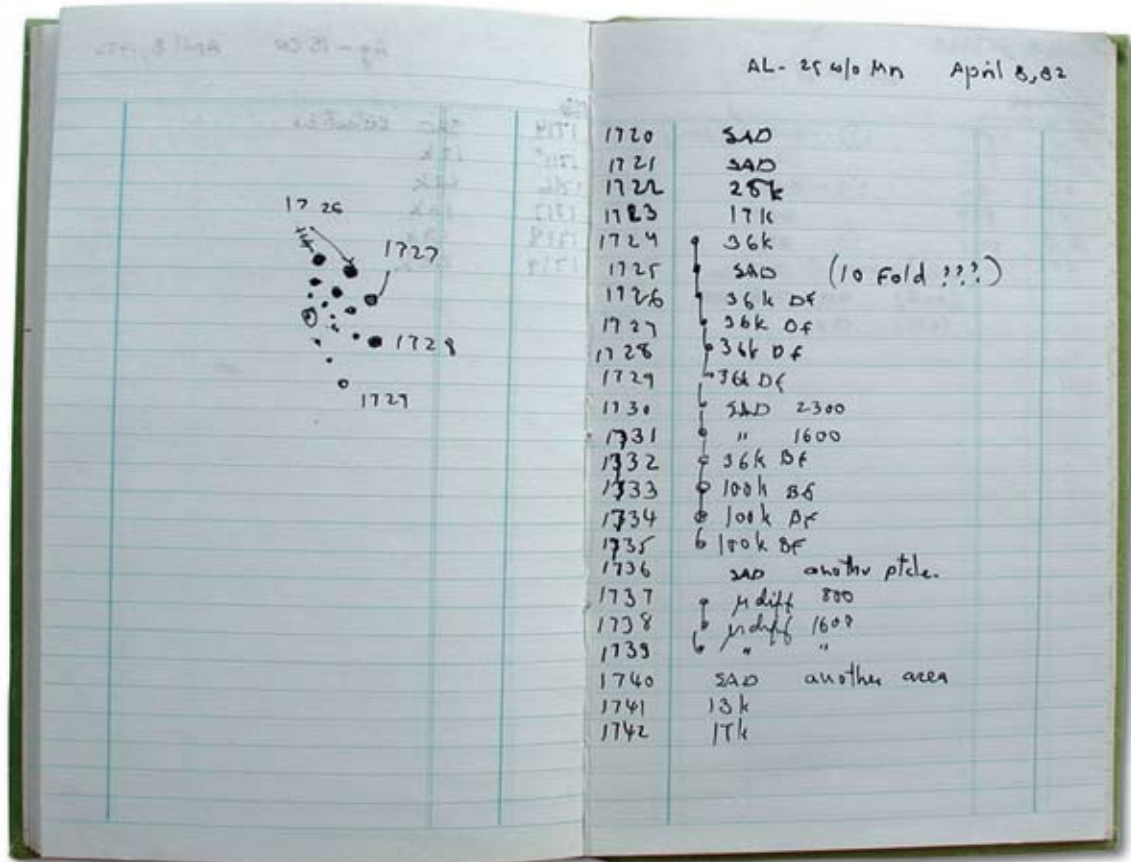 1726
1727
1728
1729
AL-25 w/o Mn April 8, 82
1720 SAD
1721 SAD
1722 25k
1723 17k
1724 36k
1725 SAD (10 Fold ???)
1726 36k DF
1727 36k DF
1728 36k DF
1729 36k DF
1730 SAD 2300
1731 " 1600
1732 36k BF
1733 100k BF
1734 100k DF
1735 100k BF
1736 SAD another ptcle.
1737 μdiff 800
1738 μdiff 1600
1739 " "
1740 SAD another area
1741 13k
1742 17k